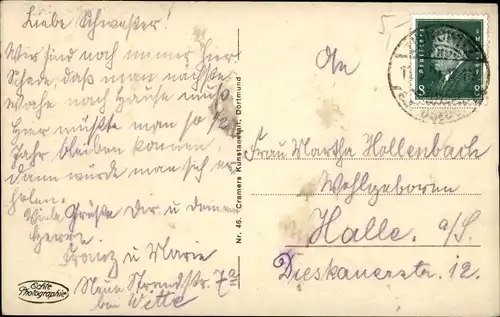 Liebe Schwester!
Wir sind noch immer hier
Schade, daß man nächste
Woche nach Hause muß
Hier müßte man so ein
Jahr bleiben können,
dann würde man sich er
holen.
Viele Grüße dir u deinem
Herrn
Franz u Marie
Neue Strandstr. 7a
bei Witte
Echte
Photographie
Nr. 46. Cramers Kunstanstalt, Dortmund
5-
8 8
An
Frau Martha Hollenbach
Wohlgeboren
Halle. a/S.
Dieskauerstr. 12.